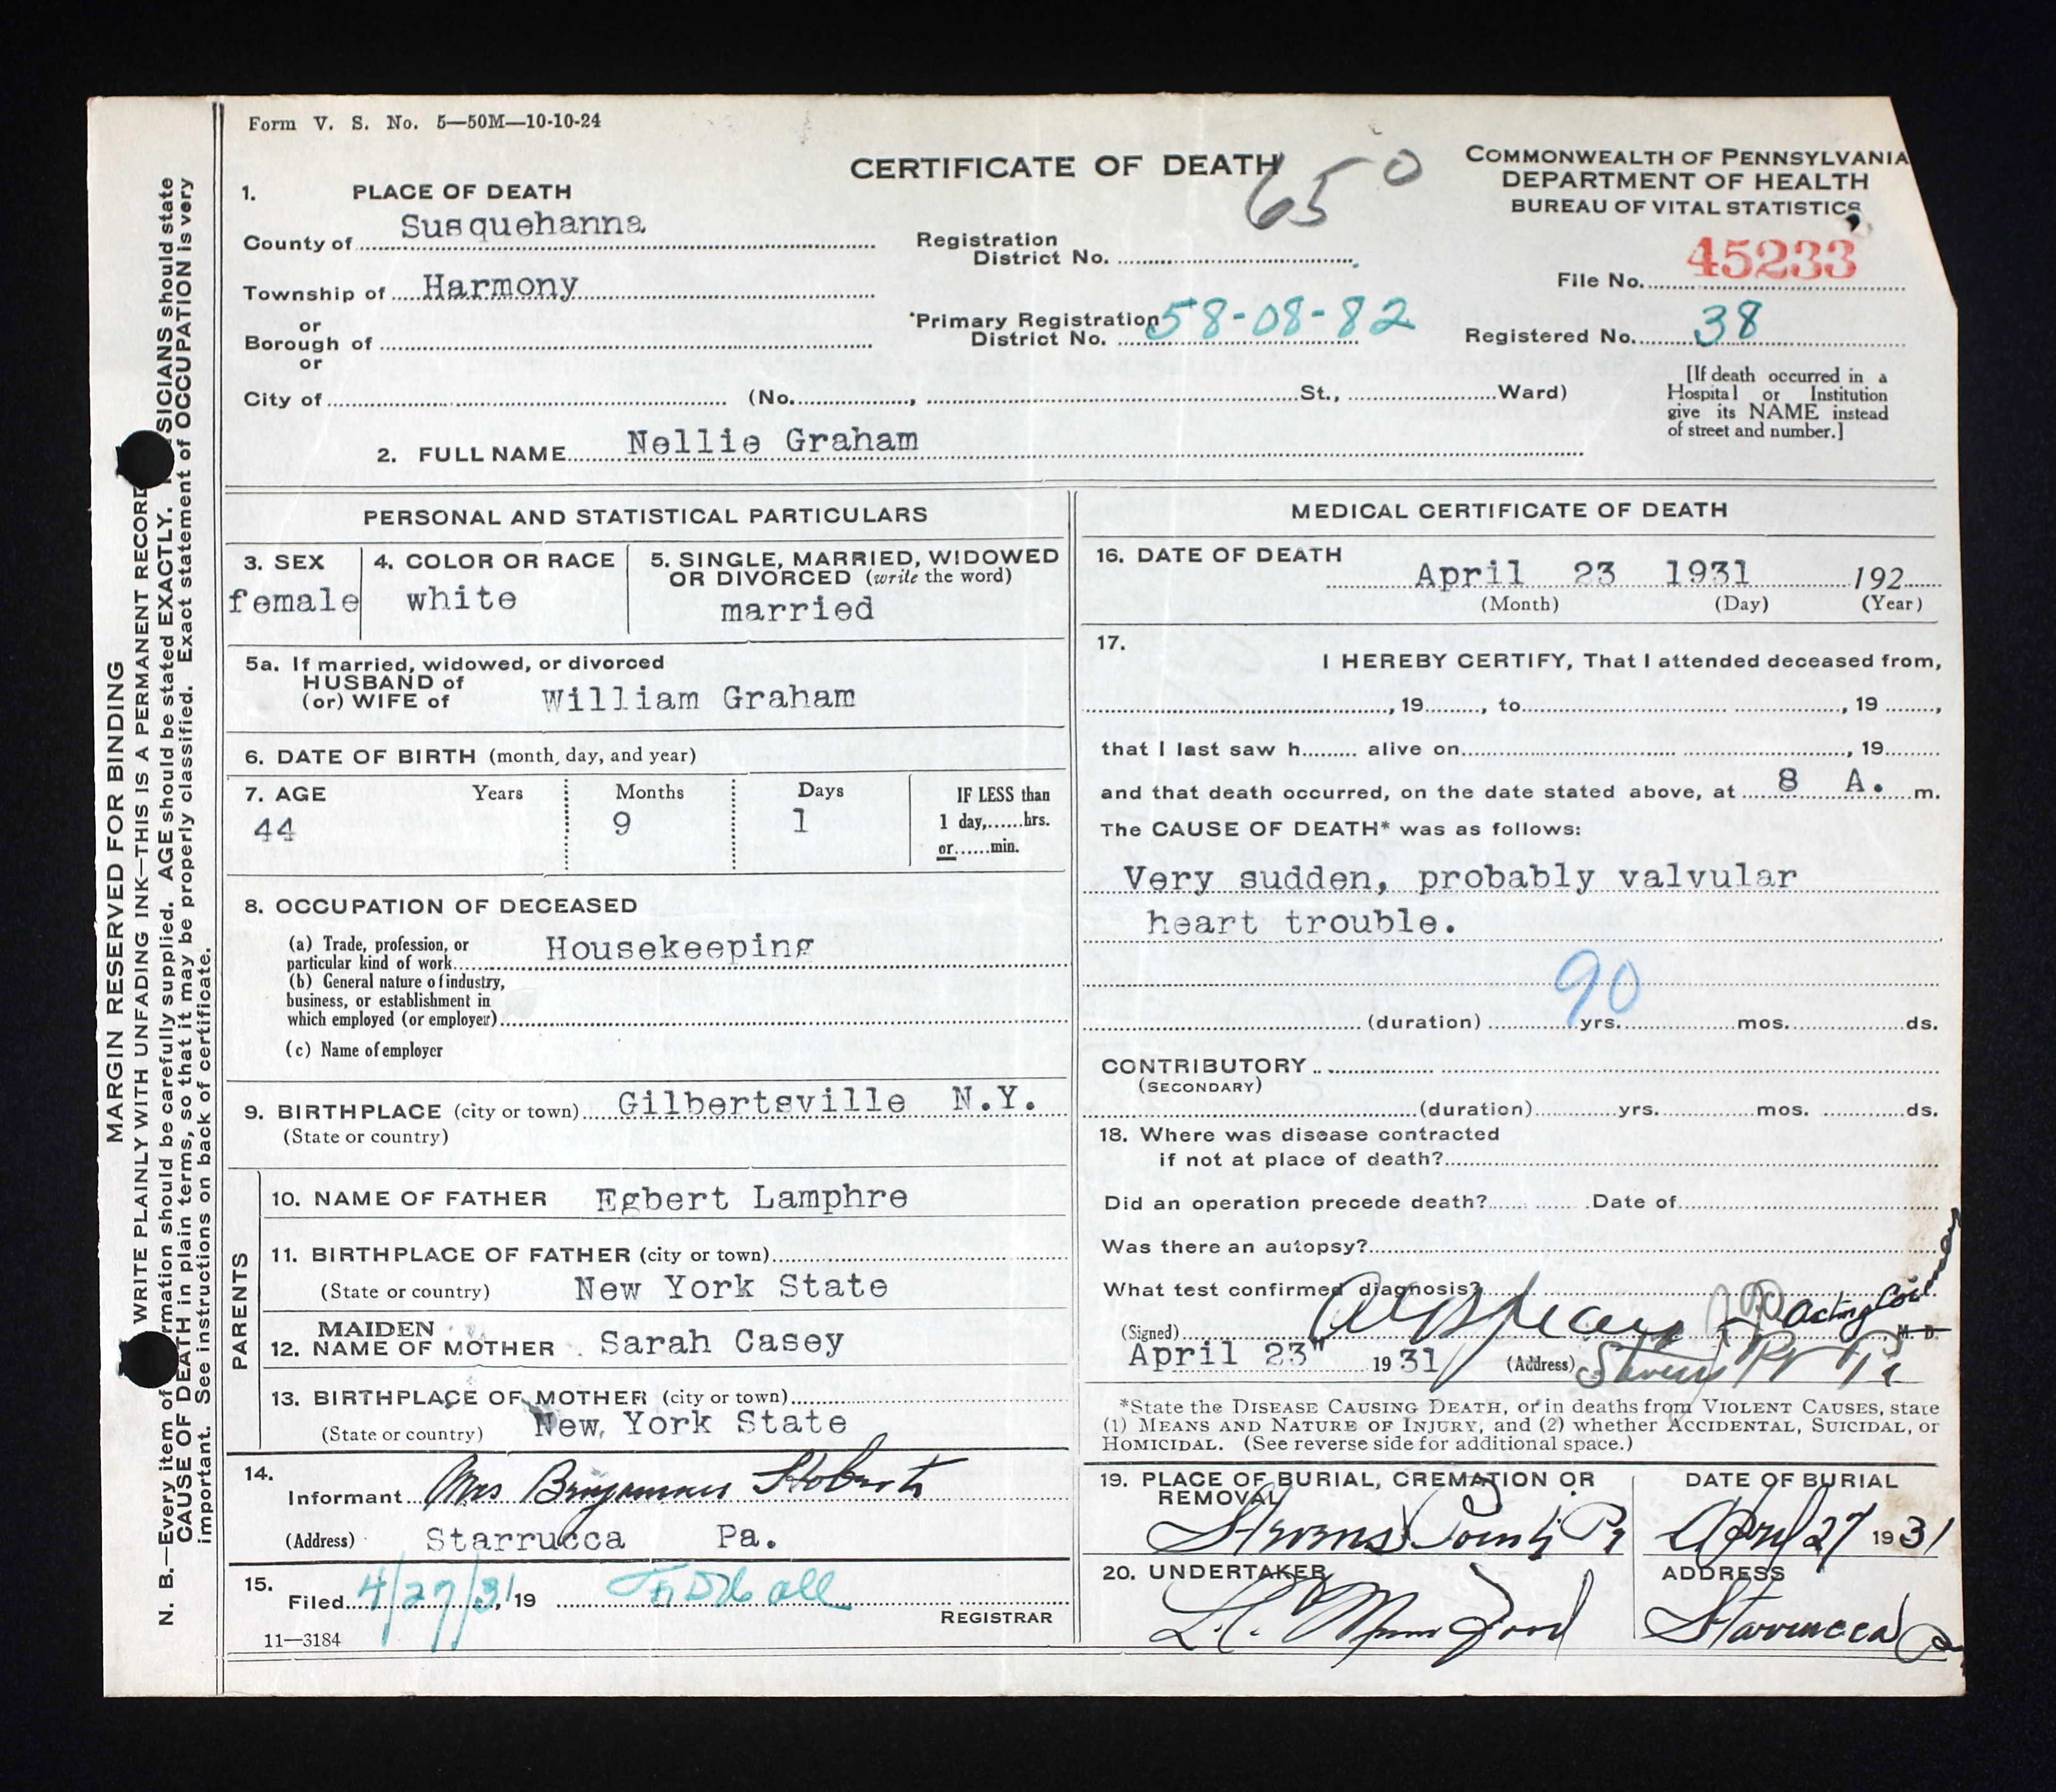 Form V. S. No. 5—50M—10-10-24
CERTIFICATE OF DEATH
650
COMMONWEALTH OF PENNSYLVANIA
DEPARTMENT OF HEALTH
BUREAU OF VITAL STATISTICS
1. PLACE OF DEATH
County of Susquehanna
Township of Harmony
or
Borough of
or
City of (No. , St., Ward)
Registration
District No.
Primary Registration
District No. 58-08-82
File No. 45233
Registered No. 38
[If death occurred in a
Hospital or Institution
give its NAME instead
of street and number.]
2. FULL NAME Nellie Graham
PERSONAL AND STATISTICAL PARTICULARS
3. SEX
female
4. COLOR OR RACE
white
5. SINGLE, MARRIED, WIDOWED
OR DIVORCED (write the word)
married
5a. If married, widowed, or divorced
HUSBAND of
(or) WIFE of William Graham
6. DATE OF BIRTH (month, day, and year)
7. AGE Years Months Days
44 9 1
IF LESS than
1 day, hrs.
or min.
8. OCCUPATION OF DECEASED
(a) Trade, profession, or
particular kind of work Housekeeping
(b) General nature of industry,
business, or establishment in
which employed (or employer)
(c) Name of employer
9. BIRTHPLACE (city or town) Gilbertsville N.Y.
(State or country)
PARENTS
10. NAME OF FATHER Egbert Lamphre
11. BIRTHPLACE OF FATHER (city or town)
(State or country) New York State
12. MAIDEN
NAME OF MOTHER Sarah Casey
13. BIRTHPLACE OF MOTHER (city or town)
(State or country) New York State
14.
Informant Mrs Benjamin Roberts
(Address) Starrucca Pa.
15.
Filed 4/27/31, 19
REGISTRAR
11—3184
MEDICAL CERTIFICATE OF DEATH
16. DATE OF DEATH
April 23 1931 192
(Month) (Day) (Year)
17.
I HEREBY CERTIFY, That I attended deceased from,
, 19 , to , 19 ,
that I last saw h alive on , 19
and that death occurred, on the date stated above, at 8 A. m.
The CAUSE OF DEATH* was as follows:
Very sudden, probably valvular
heart trouble.
90
(duration) yrs. mos. ds.
CONTRIBUTORY
(SECONDARY)
(duration) yrs. mos. ds.
18. Where was disease contracted
if not at place of death?
Did an operation precede death? Date of
Was there an autopsy?
What test confirmed diagnosis?
(Signed) Acting Coroner, M. D.
April 23" 1931 (Address) Stevens Pt Pa
*State the DISEASE CAUSING DEATH, or in deaths from VIOLENT CAUSES, state
(1) MEANS AND NATURE OF INJURY, and (2) whether ACCIDENTAL, SUICIDAL, or
HOMICIDAL. (See reverse side for additional space.)
19. PLACE OF BURIAL, CREMATION OR
REMOVAL
Stevens Point, Pa
DATE OF BURIAL
April 27 1931
20. UNDERTAKER
ADDRESS
Starrucca Pa
MARGIN RESERVED FOR BINDING
WRITE PLAINLY WITH UNFADING INK—THIS IS A PERMANENT RECORD
N. B.—Every item of rmation should be carefully supplied. AGE should be stated EXACTLY. SICIANS should state
CAUSE OF DEATH in plain terms, so that it may be properly classified. Exact statement of OCCUPATION is very
important. See instructions on back of certificate.